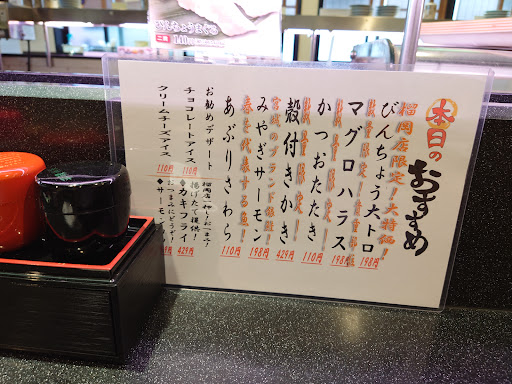 本日のおすすめ
榴岡店限定!大特価!
びんちょう大トロ
198円
マグロハラス
198円
数量限定!
かつおたたき
110円
数量限定!
殻付きかき
429円
宮城のブランド銀鮭!
みやぎサーモン
198円
春を代表する魚!
あぶりさわら
110円
お勧めデザート
チョコレートアイス
110円
クリームチーズアイス
110円
揚げたて提供!
カキフライ
429円
おつまみにどうぞ!
サーモン